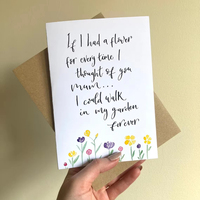 If I had a flower
for every time I
thought of you
mum...
I could walk
in my garden
forever